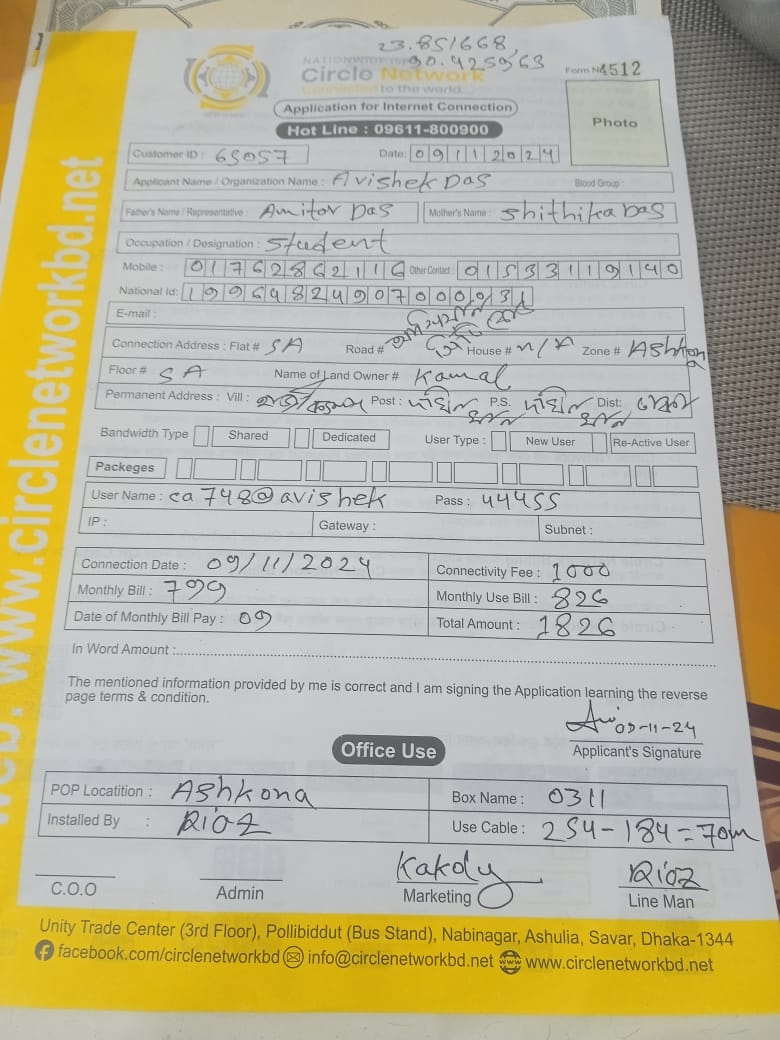 23.851668,
90.425963
NATIONWIDE ISP
Circle Network
Connected to the world...
Form No 4512
Application for Internet Connection
Hot Line : 09611-800900
Photo
Customer ID : 65057 Date: 09112024
Applicant Name / Organization Name : Avishek Das Blood Group :
Father's Name / Representative : Amitor Das Mother's Name : Shithika Das
Occupation / Designation : Student
Mobile : 01762862116 Other Contact : 01533119140
National Id: 19964824907000931
E-mail :
Connection Address : Flat # 5A Road # House # n/A Zone # Ashkona
Floor # 5A Name of Land Owner # Kamal
Permanent Address : Vill : Post : P.S. Dist:
Bandwidth Type Shared Dedicated User Type : New User Re-Active User
Packeges
User Name : ca748@avishek Pass : 44455
IP : Gateway : Subnet :
Connection Date : 09/11/2024 Connectivity Fee : 1000
Monthly Bill : 799 Monthly Use Bill : 826
Date of Monthly Bill Pay : 09 Total Amount : 1826
In Word Amount :
The mentioned information provided by me is correct and I am signing the Application learning the reverse
page terms & condition.
09-11-24
Applicant's Signature
Office Use
POP Locatition : Ashkona Box Name : 0311
Installed By : Rioz Use Cable : 254-184=70m
Kakoly Rioz
C.O.O Admin Marketing Line Man
Unity Trade Center (3rd Floor), Pollibiddut (Bus Stand), Nabinagar, Ashulia, Savar, Dhaka-1344
facebook.com/circlenetworkbd info@circlenetworkbd.net www.circlenetworkbd.net
web: www.circlenetworkbd.net